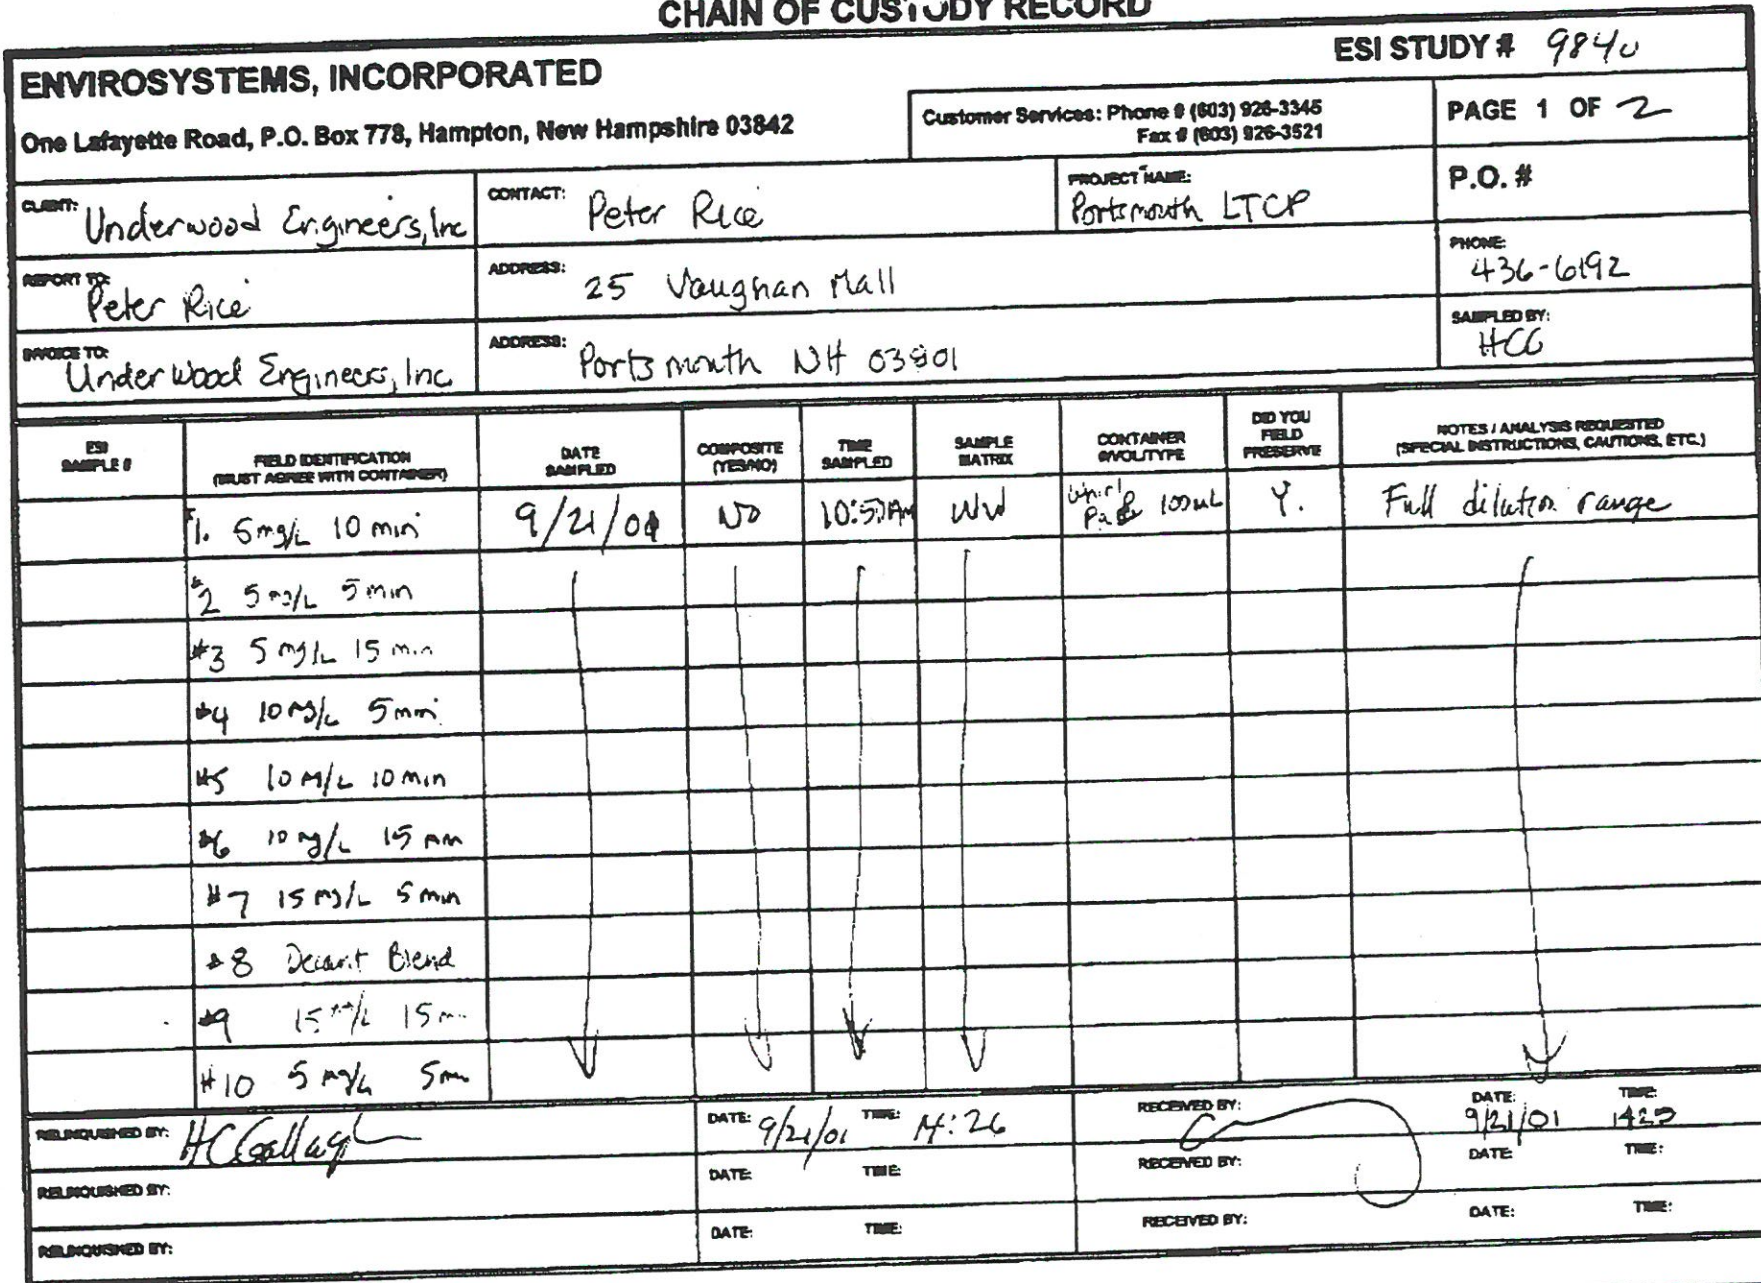 CHAIN OF CUSTODY RECORD
ESI STUDY # 9840
ENVIROSYSTEMS, INCORPORATED
One Lafayette Road, P.O. Box 778, Hampton, New Hampshire 03842
Customer Services: Phone # (603) 926-3345
Fax # (603) 926-3521
PAGE 1 OF 2
CLIENT: Underwood Engineers, Inc
CONTACT: Peter Rice
PROJECT NAME: Portsmouth LTCP
P.O. #
REPORT TO: Peter Rice
ADDRESS: 25 Vaughan Mall
PHONE: 436-6192
INVOICE TO: Underwood Engineers, Inc
ADDRESS: Portsmouth NH 03801
SAMPLED BY: HCG
ESI SAMPLE # FIELD IDENTIFICATION (MUST AGREE WITH CONTAINER) DATE SAMPLED COMPOSITE (YES/NO) TIME SAMPLED SAMPLE MATRIX CONTAINER #/VOL/TYPE DID YOU FIELD PRESERVE NOTES / ANALYSIS REQUESTED (SPECIAL INSTRUCTIONS, CAUTIONS, ETC.)
#1. 5mg/L 10 min 9/21/01 NO WW Whirl Pak 100mL Y. Full dilution range
#2 5 mg/L 5 min
#3 5 mg/L 15 min
#4 10 mg/L 5 min
#5 10 mg/L 10 min
#6 10 mg/L 15 min
#7 15 mg/L 5 min
#8 Decant Blend
#9 15 mg/L 15 min
#10 5 mg/L 5 min
RELINQUISHED BY: HC Gallagh DATE: 9/21/01 TIME: 14:26 RECEIVED BY: DATE: 9/21/01 TIME:
RELINQUISHED BY: DATE: TIME: RECEIVED BY: DATE: TIME:
RELINQUISHED BY: DATE: TIME: RECEIVED BY: DATE: TIME: